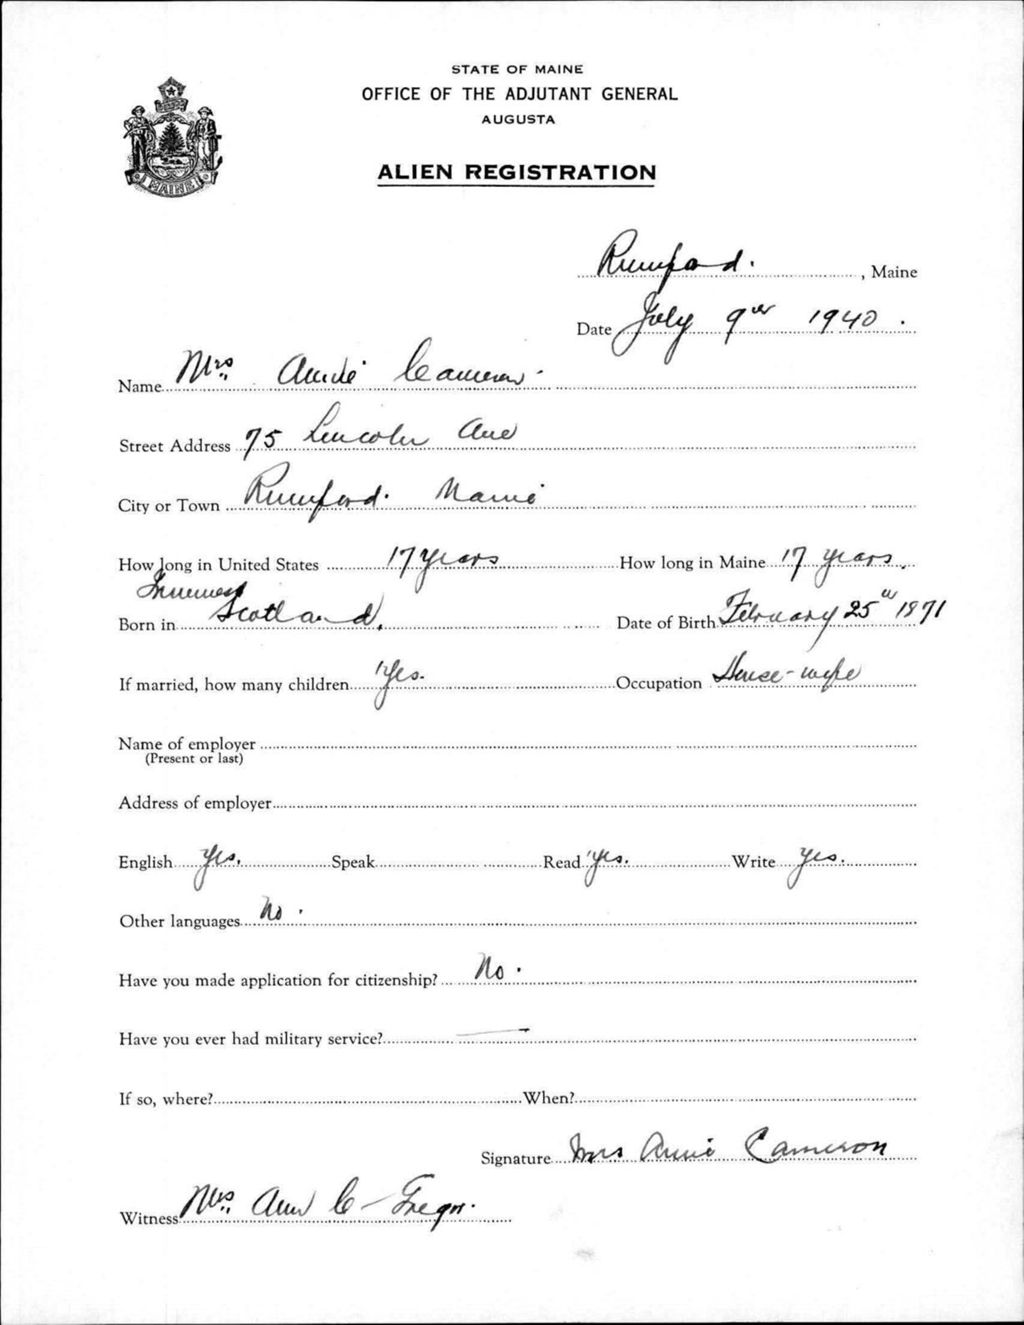 STATE OF MAINE
OFFICE OF THE ADJUTANT GENERAL
AUGUSTA
ALIEN REGISTRATION
MAINE
Rumford. , Maine
Date July 9th 1940.
Name Mrs. Annie Cameron
Street Address 75 Lincoln Ave
City or Town Rumford. Maine
How long in United States 17 years How long in Maine 17 years.
Inverness
Born in Scotland. Date of Birth February 25th 1871
If married, how many children Yes. Occupation House-wife
Name of employer
(Present or last)
Address of employer
English Yes. Speak Read Yes. Write Yes.
Other languages No.
Have you made application for citizenship? No.
Have you ever had military service? —
If so, where? When?
Signature Mrs Annie Cameron
Witness Mrs. Ann C-